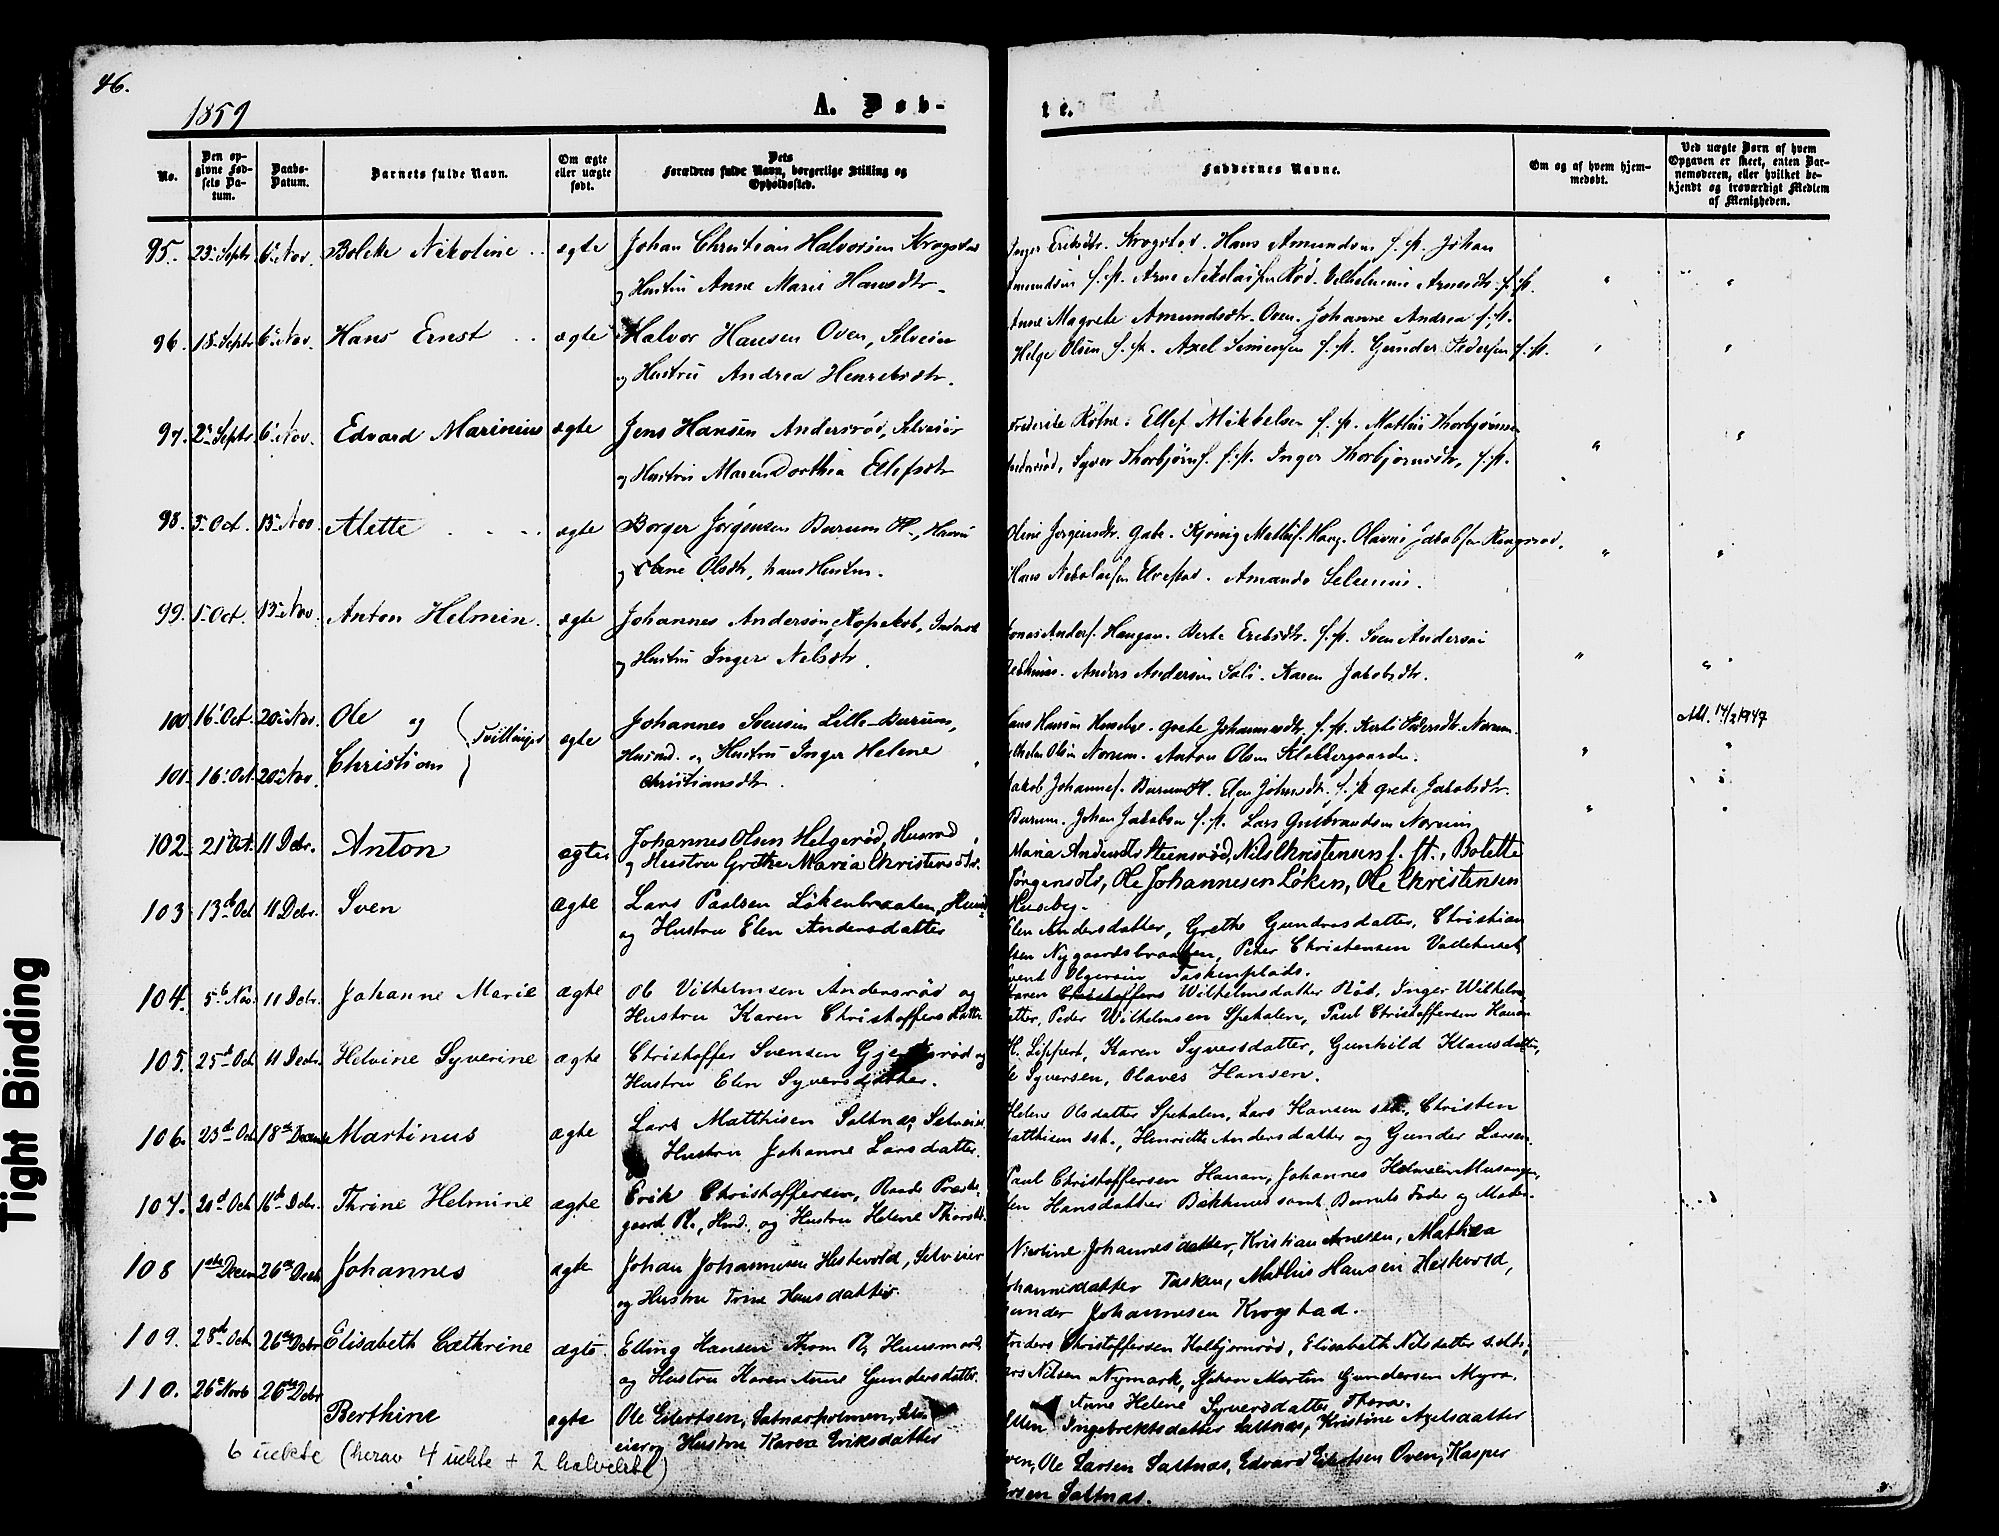 46.
1859
A. Døb-
te.
No.
Den op-
givne Fød-
sels Da-
tum.
Daabs-
Datum.
Barnets fulde Navn.
Om ægte
eller uægte
født.
Dets
Forældres fulde Navn, borgerlige Stilling og
Opholdssted.
Faddernes Navne.
Om og af hvem hjem-
medøbt.
Ved uægte Børn af hvem
Opgaven er skeet, enten Bar-
nemoderen, eller hvilket be-
kjendt og troværdigt Medlem
af Menigheden.
95. 23 Septr 6 Nov. Bolette Nikoline ægte Johan Christian Halvorsen Krogstad
og Hustru Anne Marie Hansdtr.
Inger Eriksdtr. Krogstad. Hans Amundsen f. st. Johan
Amundsen f. st. Arne Nikolaisen Rød. Vilhelmine Arnesdtr. f. st.
96. 18 Septr 6 Nov. Hans Ernst ægte Halvor Hansen Oven, Selveier
og Hustru Andrea Henriksdtr.
Anne Magrete Amundsdtr. Oven. Johanne Andrea f. st.
Helge Olsen f. st. Axel Simensen f. st. Gunder Pedersen f. st.
97. 2 Septr 6 Nov. Edvard Marinius ægte Jens Hansen Andersrød, Selveier
og Hustru Maren Dorthea Ellefsdtr
Ellef Mikkelsen f. st. Mathis Thorbjørnsen
Andersrød, Syver Thorbjørns. f. st. Inger Thorbjørnsdtr, f. st.
98. 3 Oct. 13 Nov. Alette ægte Borger Jørgensen Burum Pl.,
og Olsdtr, hans Hustru.
Oline Jørgensdtr. Olavus Jakobsen
Hans Nikolaisen Elvestad. Amanda
99. 1 Oct. 13 Nov Anton Helmin. ægte Johannes Andersen
og Hustru Inger Nilsdtr.
Haugen. Berte Eriksdtr. f. st. Sven Andersen
Anders Andersen Karen Jakobsdtr.
100. 16 Oct. 20 Nov. Ole og
101. 16 Oct. 20 Nov. Christian Tvillinger ægte
Johannes Svensen Lille-Burum,
Husmd. og Hustru Inger Helene
Christiansdtr.
Hans Hansen Huseby. Grete Johannesdtr. f. st. Norum.
Olsen Norum. Anton Olsen Klokkergaarden.
Jakob Johannes. Burum Pl. Elen Johnsdtr. f. st. Grete Jakobsdtr.
Burum. Johan Jakobsen f. st. Lars Gulbrandsen Norum
Att. 14/2 1947
102. 21 Oct. 11 Debr. Anton ægte Johannes Olsen Helgerød, Husmd
og Hustru Grethe Maria Christensdtr.
Maria Andersdtr Steensrød, Nils Christensen f. st., Bolette
Jørgensdtr, Ole Johannesen Løken, Ole Christensen
Huseby.
103 13de Oct 11 Debr. Sven ægte Lars Paalsen Løkenbraaten, Husmd
og Hustru Elen Andersdatter
Elen Andersdatter, Grethe Gundersdatter, Christian
Olsen Nygaardsbraaten, Peter Christensen Vadethuset
Svend Olgersen Taskenplads.
104. 5te Nov. 11 Debr. Johanne Marie ægte Ole Vilhelmsen Andersrød og
Hustru Karen Christoffersdatter
Karen Christoffers Wilhelmsdatter Rød, Inger Wilhelms
datter, Peder Wilhelmsen Spetalen, Paul Christoffersen Hauan
105. 25de Oct 11 Debr. Helvine Syverine ægte Christoffer Svensen Gjerdsrød og
Hustru Elen Syversdatter.
H. Lippert, Karen Syversdatter, Gunhild Klausdatter,
Syversen, Olaves Hansen.
106. 23de Oct 18de Decembr Martinus ægte Lars Matthisen Saltnæs, Selveier
Hustru Johanne Larsdatter.
Helene Olsdatter Spetalen, Lars Hansen sst., Christen
Matthisen sst., Henriette Andersdatter og Gunder Larsen.
107. 20d Oct 16de Debr. Thrine Helmine ægte Erik Christoffersen, Raade Præste-
gaard Pl., Hmd. og Hustru Helene Thorsd.
Paul Christoffersen Hauan, Johannes Helmersen Musangen,
Elen Hansdatter Bakkhus samt Barnets Fader og Moder.
108 1ste Decem 26de Decb Johannes ægte Johan Johannesen Hestevold, Selveier
og Hustru Trine Hansdatter.
Nicoline Johannesdatter, Kristian Arnesen, Mathea
Johannesdatter Tasken, Mathis Hansen Hestevold,
Gunder Johannesen Krogstad.
109. 28de Oct. 26de Debr Elisabeth Cathrine ægte. Elling Hansen Thom Pl, Huusmand
og Hustru Karen Anne Gundersdatter.
Christoffersen Kolbjørnrød, Elisabeth Nilsdatter
Nilsen Nymark, Johan Martin Gundersen Myra.
Anne Helene Syversdatter Thom.
110. 26de Novb 26de Debr Berthine ægte Ole Eilertsen, Saltnæsholmen, Selv-
eier og Hustru Karen Eriksdatter
Ellen Ingebrektsdatter Saltnæs, Kristine Axelsdatter
Oven, Ole Larsen Saltnæs, Edvard Eilertsen Oven, Kasper
Larsen Saltnæs.
6 uekte (herav 4 uekte + 2 halvekte)
Tight Binding